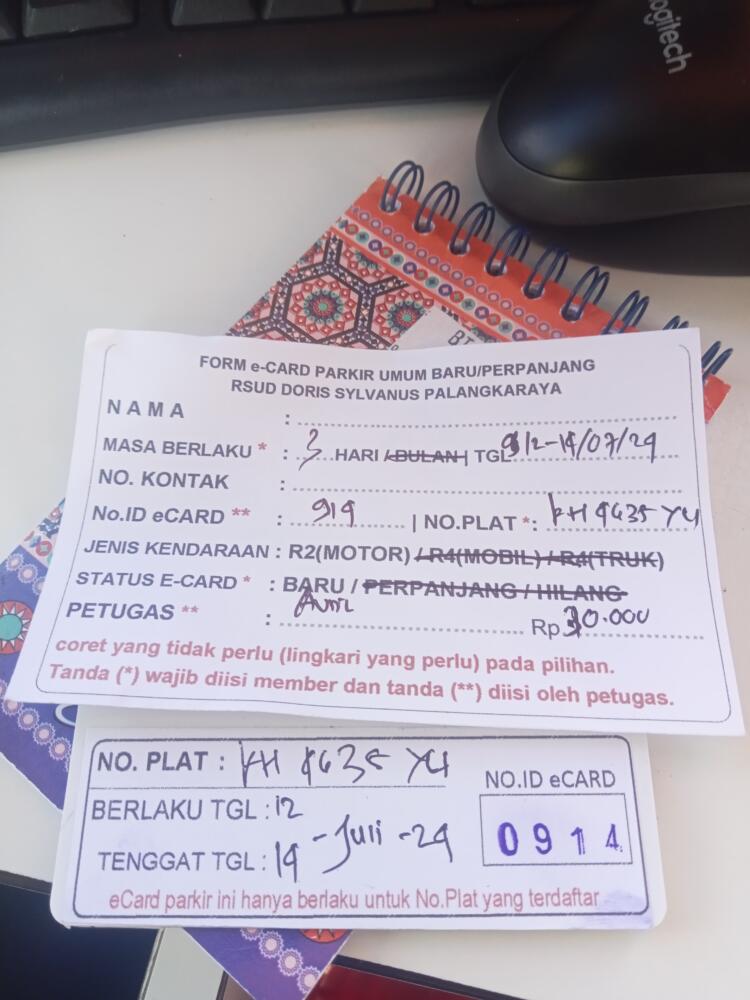 logitech
BT
FORM e-CARD PARKIR UMUM BARU/PERPANJANG
RSUD DORIS SYLVANUS PALANGKARAYA
NAMA :
MASA BERLAKU * : 3 HARI /BULAN | TGL 12-14/07/24
NO. KONTAK :
No.ID eCARD ** : 914 | NO.PLAT *: KH 4635 YU
JENIS KENDARAAN : R2(MOTOR) / R4(MOBIL) / R4(TRUK)
STATUS E-CARD * : BARU / PERPANJANG / HILANG
PETUGAS ** : Rp 30.000
coret yang tidak perlu (lingkari yang perlu) pada pilihan.
Tanda (*) wajib diisi member dan tanda (**) diisi oleh petugas.
NO. PLAT : KH 4635 YU
NO.ID eCARD
BERLAKU TGL : 12
0914
TENGGAT TGL : 14 - Juli - 24
eCard parkir ini hanya berlaku untuk No.Plat yang terdaftar